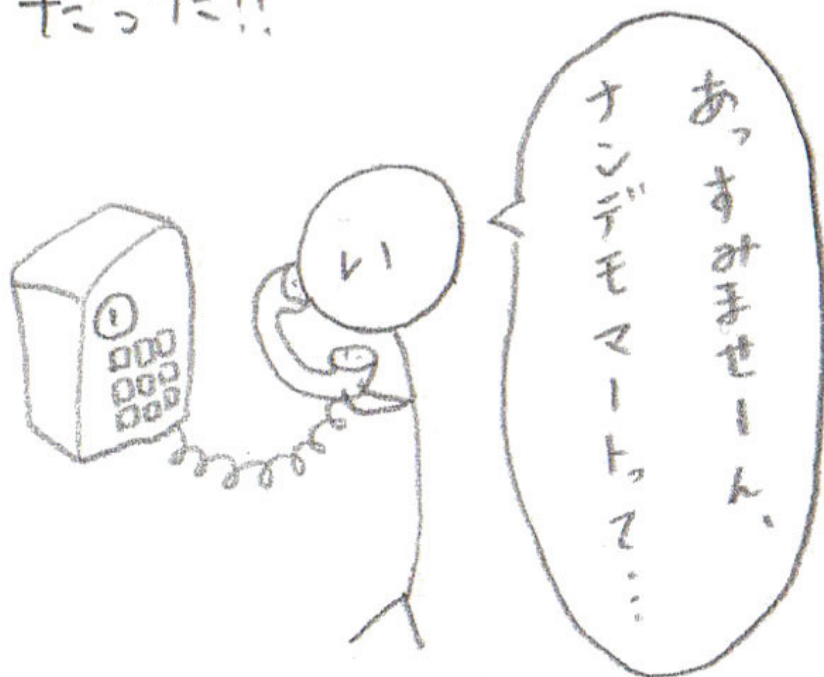 だった!!
あっすみませーん、
ナンデモマートって…
い